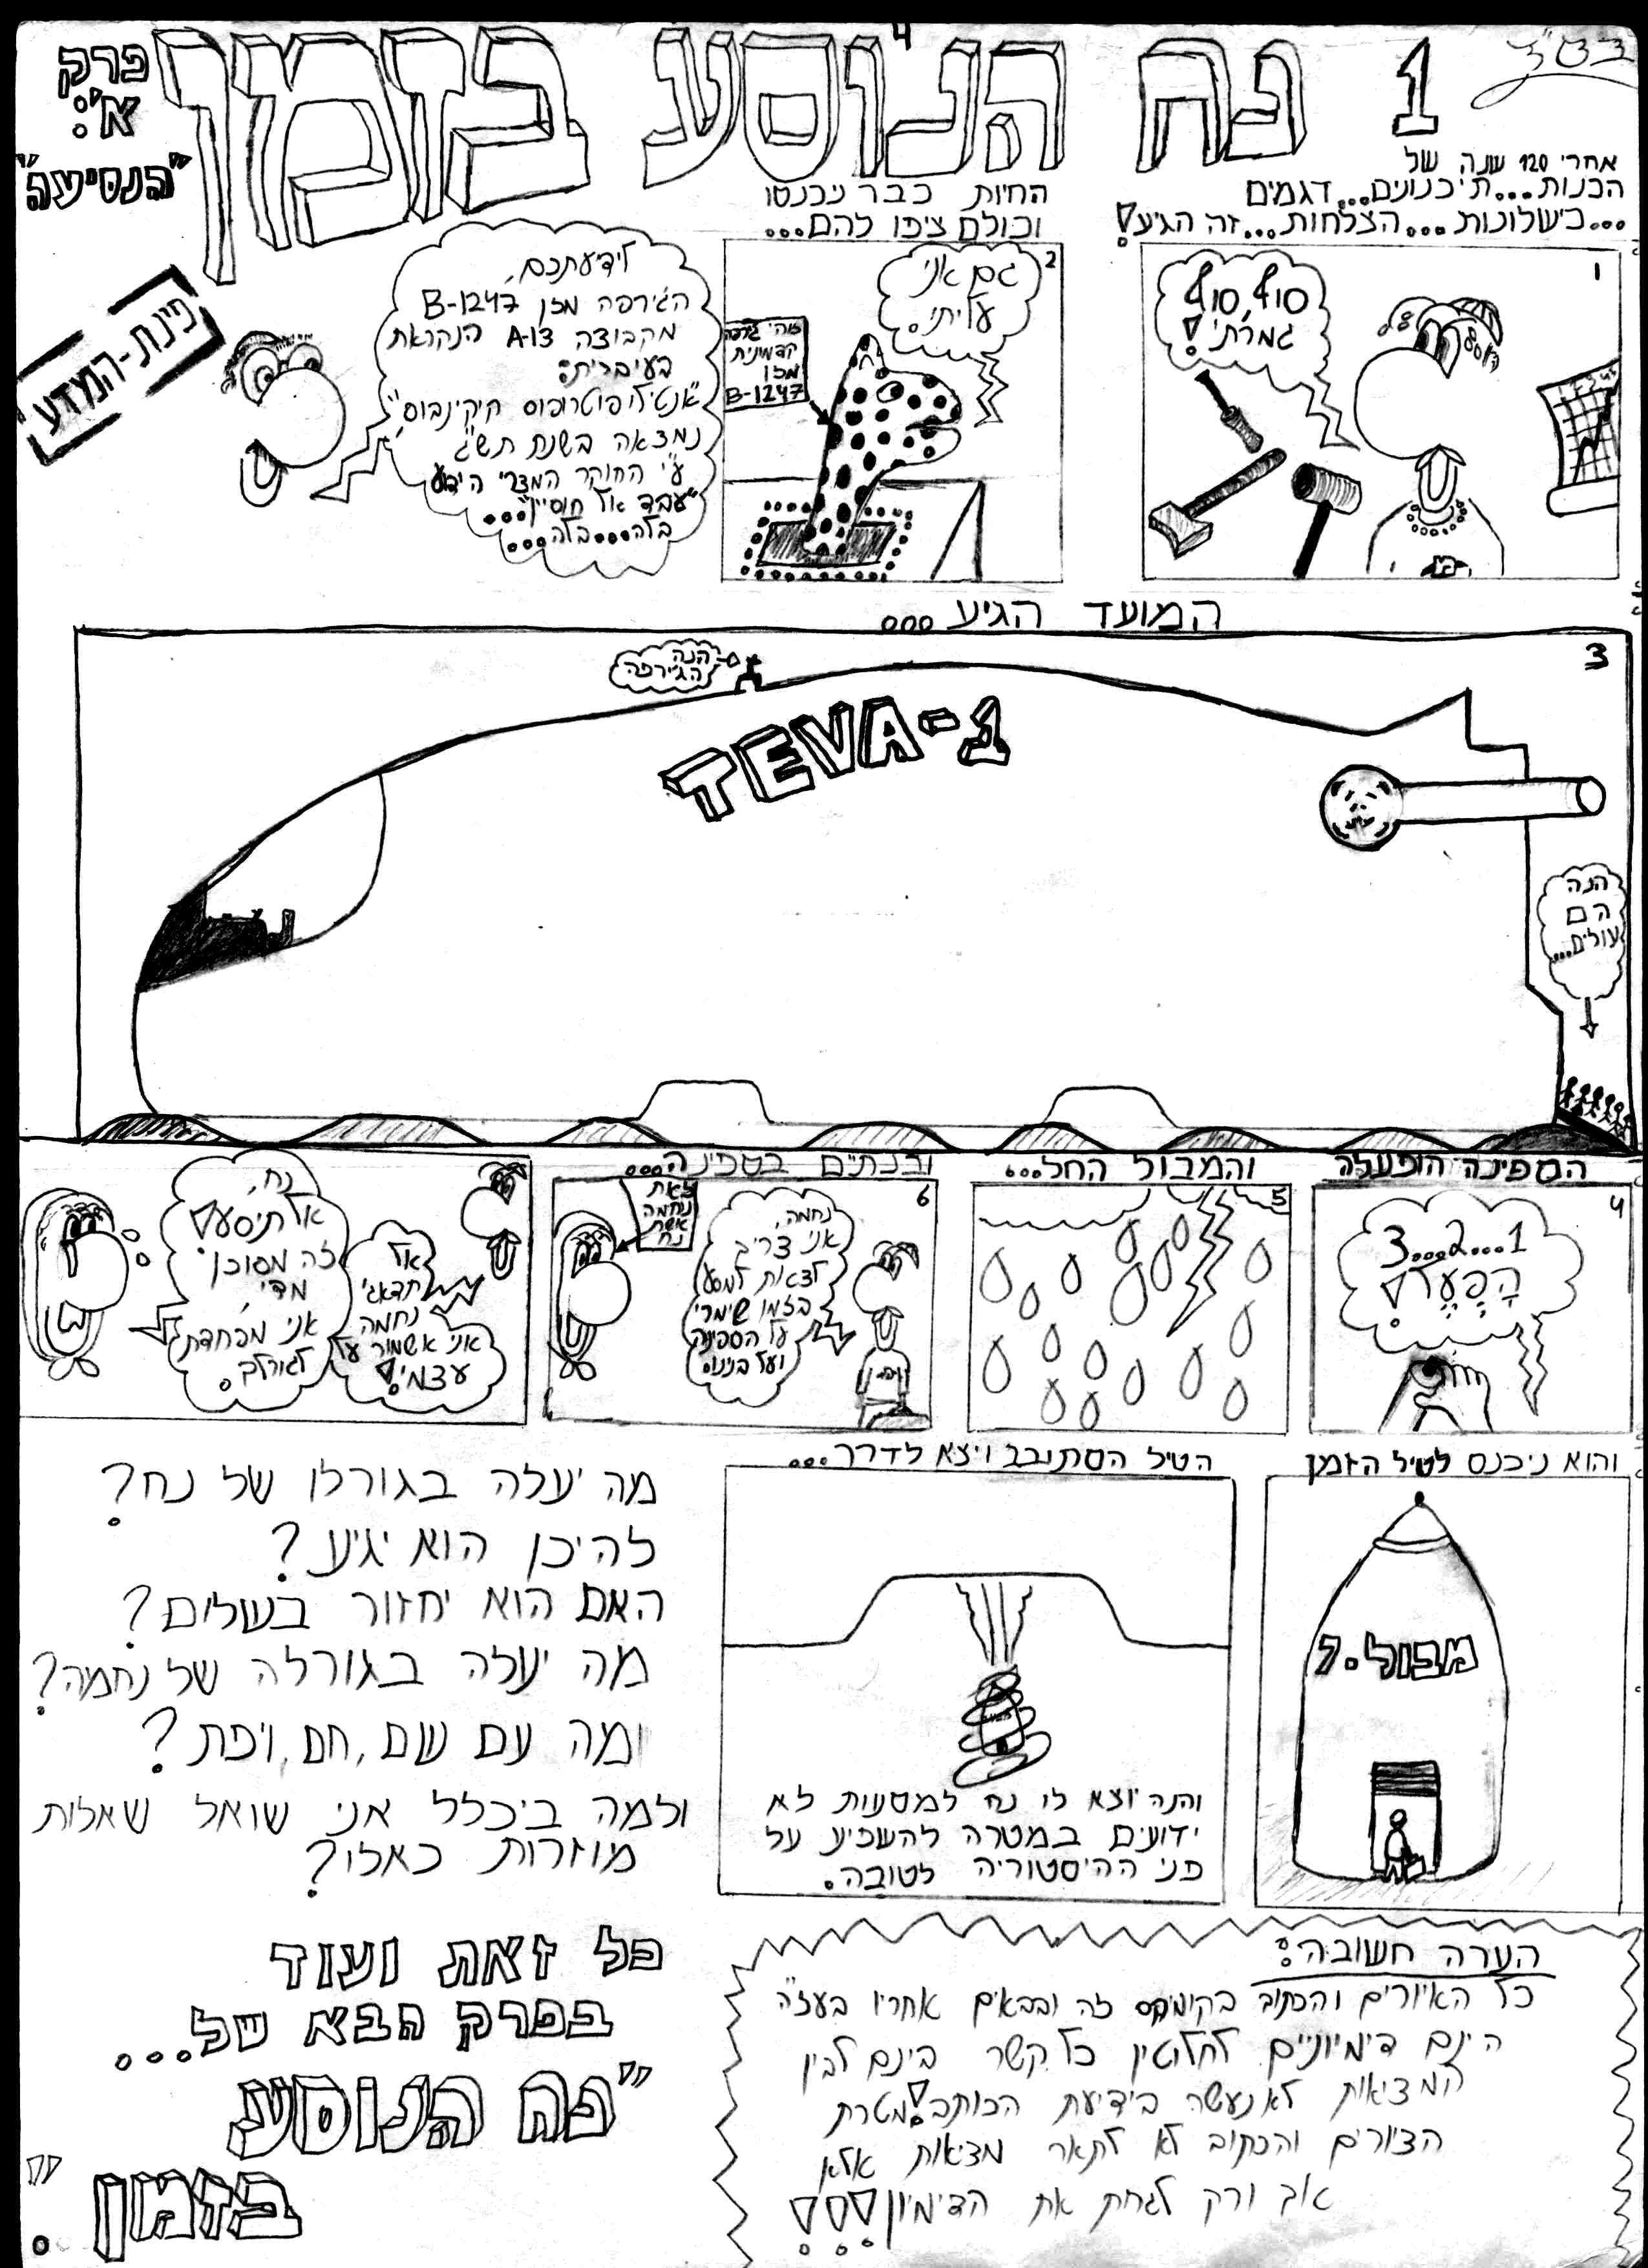 בס"ד
1 נח הנוסע בזמן
פרק
א':
"הנסיעה"
אחרי 120 שנה של
הכנות...תיכנונים...דגמים
...כישלונות...הצלחות...זה הגיע!
1
סוף סוף
גמרתי!
החיות כבר ניכנסו
וכולם ציפו להם...
2
גם אני
עליתי.
זוהי גירפה
קדמונית
מזן
B-1247
לידיעתכם,
הג'ירפה מזן B-1247
מקבוצה A-13 הנקראת
בעיברית:
"אנטילופוטרופוס קיקינבוס"
נמצאה בשנת תש"ג
ע"י החוקר המצרי הידוע
"עבד אל חוסיין"...
בלה...בלה...
פינת-המדע
המועד הגיע...
3
הנה
הג'ירפה
TEVA-1
הנה
הם
עולים...
הספינה הופעלה
4
3...2...1
הָפְעֵל!
והמבול החל...
5
ובנתיים בספינה...
6
נחמה,
אני צריך
לצאת למסע
בזמן שימרי
על הספינה
ועל בנינו.
זאת
נחמה
אשת
נח
נח,
אל תיסע!
זה מסוכן
מדי,
אני מפחדת
לגורלך.
אל
תדאגי
נחמה
אני אשמור על
עצמי!
והוא ניכנס לטיל הזמן
מבול.7
הטיל הסתובב ויצא לדרך...
והנה יוצא לו נח למסעות לא
ידועים במטרה להשפיע על
פני ההיסטוריה לטובה.
מה יעלה בגורלו של נח?
להיכן הוא יגיע?
האם הוא יחזור בשלום?
מה יעלה בגורלה של נחמה?
ומה עם שם, חם, ויפת?
ולמה ביכלל אני שואל שאלות
מוזרות כאלו?
כל זאת ועוד
בפרק הבא של...
"נח הנוסע
בזמן".
הערה חשובה:
כל האיורים והכתוב בקומיקס זה ובבאים אחריו בעז"ה
הינם דימיוניים לחלוטין כל קשר בינם לבין
המציאות לא נעשה בידיעת הכותב! מטרת
הציורים והכתוב לא לתאר מציאות אלא
אך ורק לגרות את הדימיון!!!